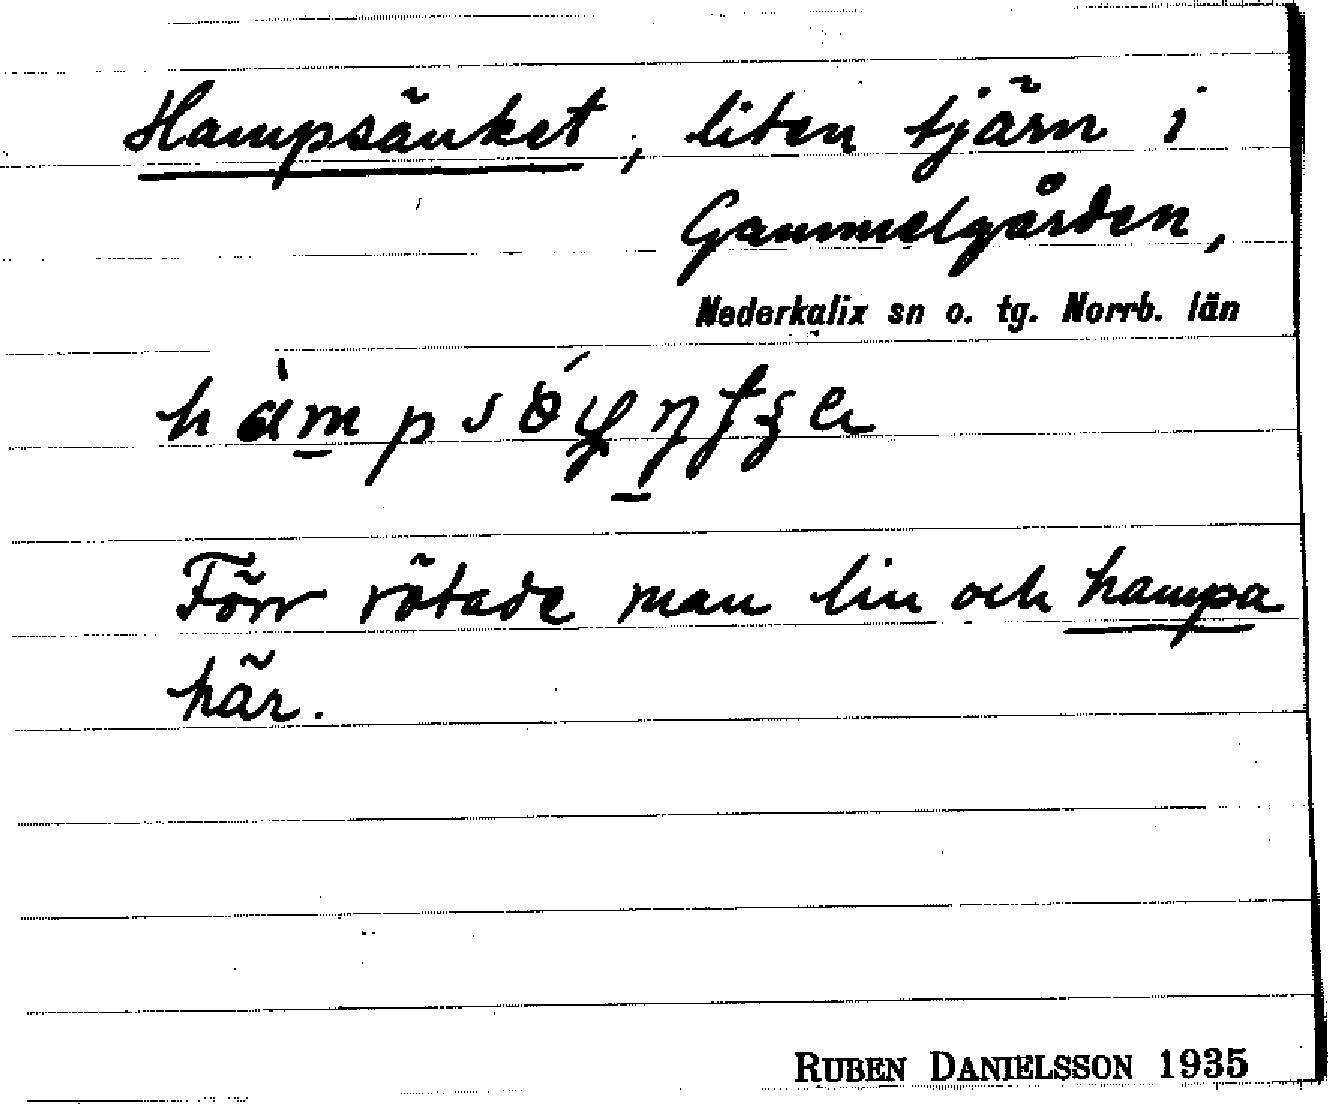 Hampsänket, liten tjärn i
Gammelgården,
Nederkalix sn o. tg. Norrb. län
Förr rötade man lin och hampa
här.
RUBEN DANIELSSON 1935